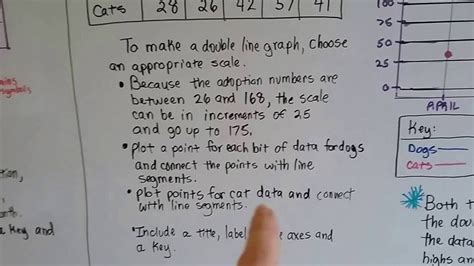 Cats 28 26 42 57 41
To make a double line graph, choose
an appropriate scale.
• Because the adoption numbers are
between 26 and 168, the scale
can be in increments of 25
and go up to 175.
• plot a point for each bit of data for dogs
and connect the points with line
segments.
• plot points for cat data and connect
with line segments.
• Include a title, label axes and
a key.
symbols
100
75
50
25
0
APRIL
Key:
Dogs
Cats
Both t
the dou
the da
highs an